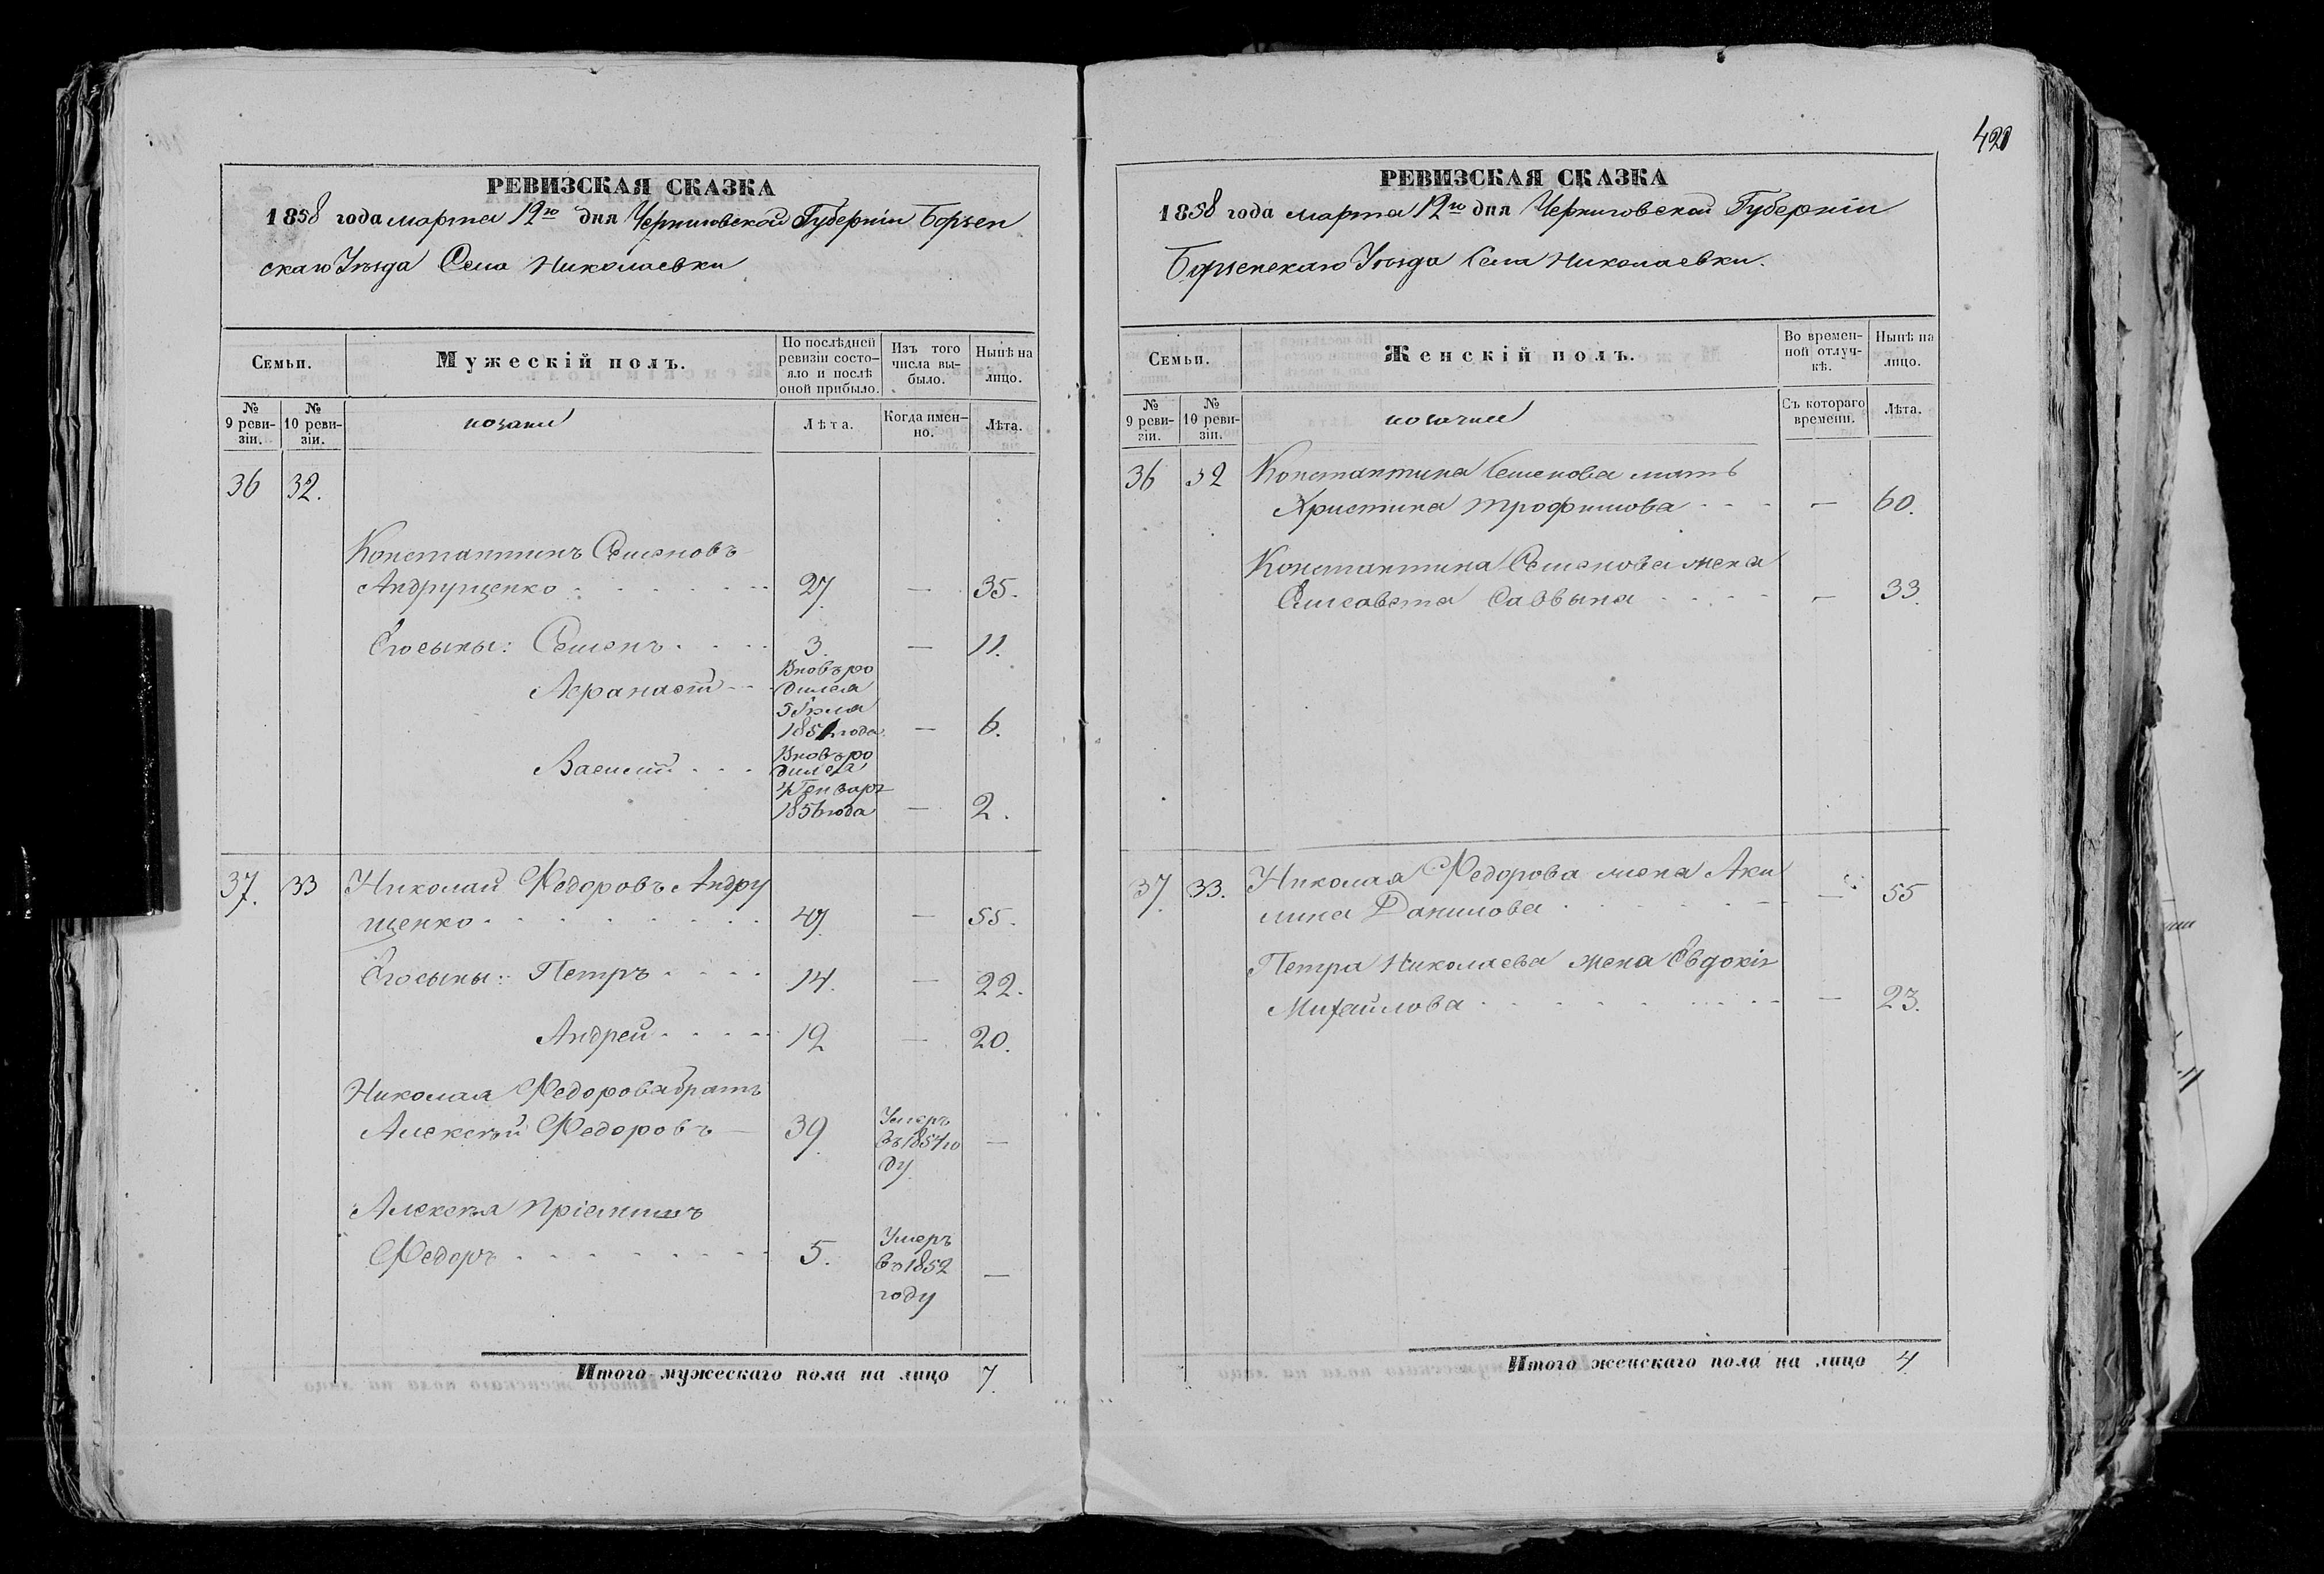 420
РЕВИЗСКАЯ СКАЗКА
1858 года марта 12го дня Черниговской Губерніи Борзен
скаго Уѣзда Села Николаевки
Семьи.
Мужескій полъ.
По послѣдней
ревизіи состо-
яло и послѣ
оной прибыло.
Изъ того
числа вы-
было.
Нынѣ на
лицо.
№
9 реви-
зіи.
№
10 реви-
зіи.
козаки
Лѣта.
Когда имен-
но.
Лѣта.
36 32.
Константинъ Семеновъ
Андрущенко 27. — 35.
Его сыны: Семенъ 3. — 11.
Афанасій
Вновь ро
дился
5 Іюля
1851 года — 6.
Василій
Вновь ро
дился
4 Генваря
1856 года — 2.
37. 33 Николай Федоровъ Андру
щенко 49. — 55.
Его сыны: Петръ 14. — 22.
Андрей 12 — 20.
Николая Федорова братъ
Алексѣй Федоровъ — 39. —
Умеръ
въ 1854 го
ду
Алексѣя пріемышъ
Федоръ 5. —
Умеръ
въ 1852
году
Итого мужескаго пола на лицо 7.
РЕВИЗСКАЯ СКАЗКА
1858 года марта 12го дня Черниговской Губерніи
Борзенскаго Уѣзда Села Николаевки.
Семьи.
Женскій полъ.
Во времен-
ной отлуч-
кѣ.
Нынѣ на
лицо.
№
9 реви-
зіи.
№
10 реви-
зіи.
козачки
Съ котораго
времени.
Лѣта.
36 32 Константина Семенова мать
Христина Трофимова — 60.
Константина Семенова жена
Елисавета Саввына — 33.
37. 33. Николая Федорова жена Аки
лина Данилова — 55
Петра Николаева жена Евдокія
Михайлова — 23.
Итого женскаго пола на лицо 4.